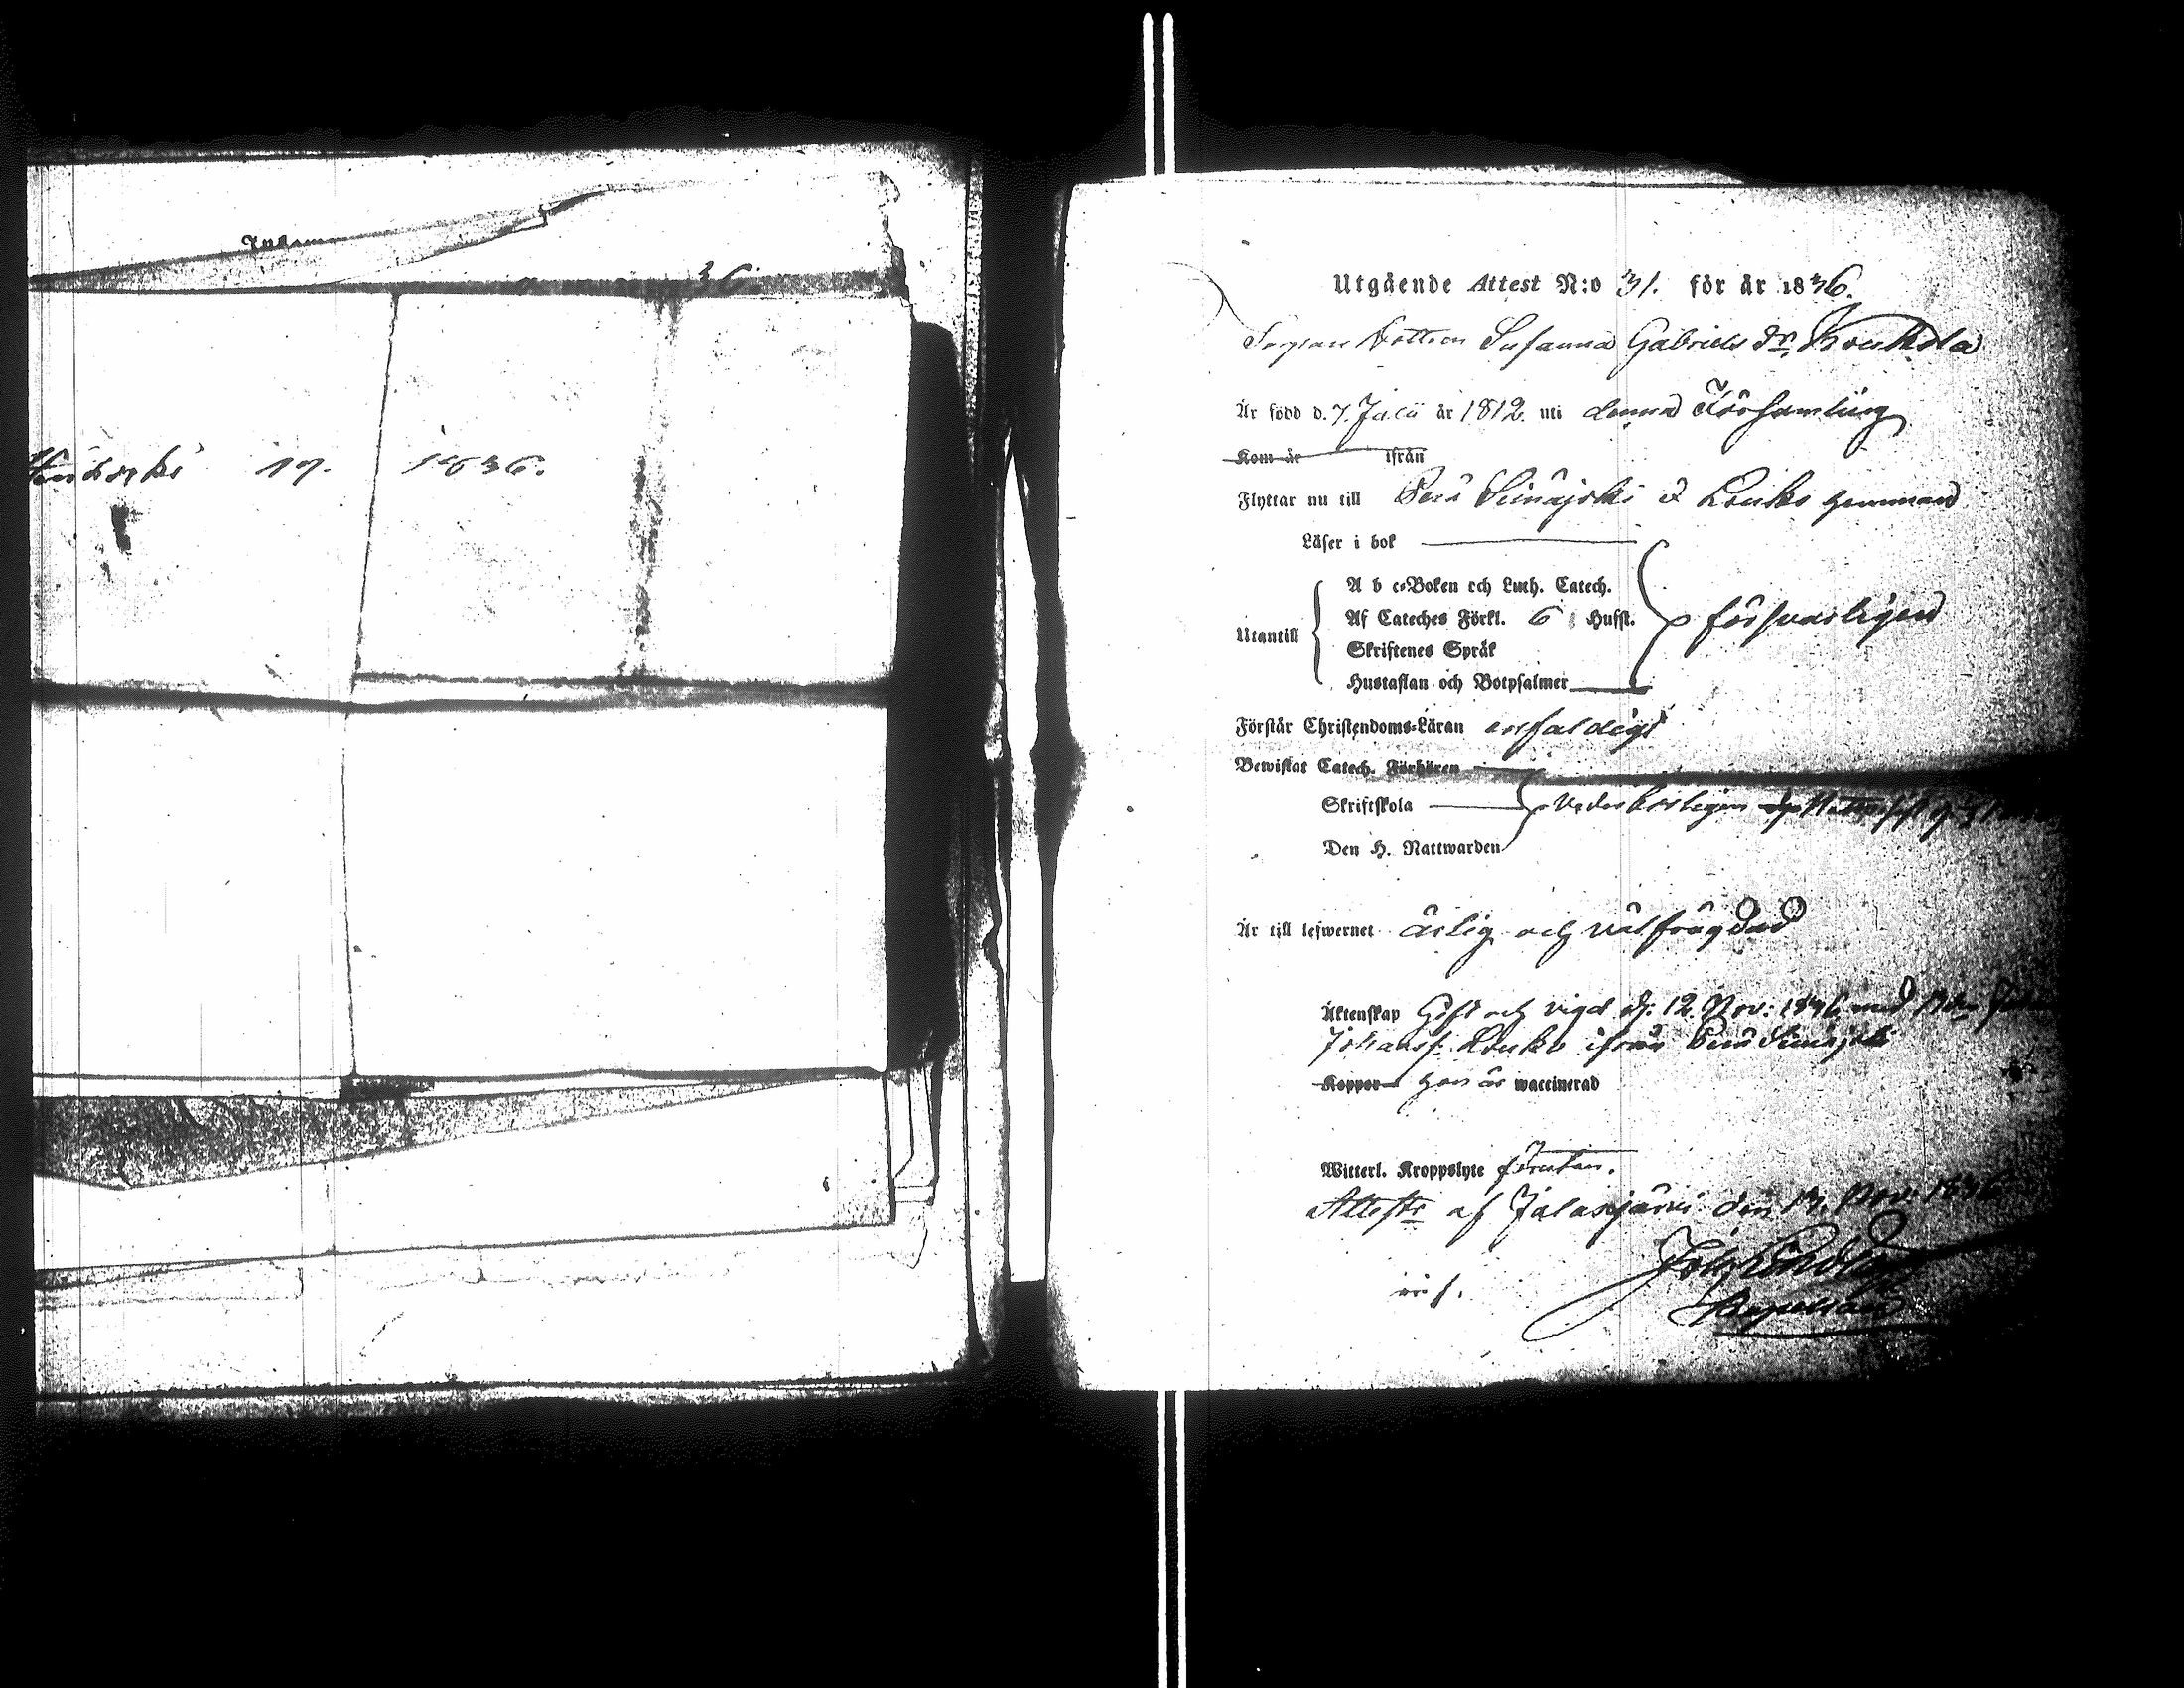 36.
17. 1836.
Utgående Attest N:o 31. för år 1836.
Susanna Gabriels dr Koukola
Är född d. 7 Julii år 1812. uti denna Församling
Kom år ifrån
Flyttar nu till Perä Seinäjoki Louko hemman
Läser i bok
A b c-Boken och Luth. Catech.
Af Cateches Förkl. 6 Hufst.
Utantill försvarligen
Skriftenes Språk
Hustaflan och Botpsalmer
Förstår Christendoms-Läran enfaldigt
Bewistat Catech. Förhören
Skriftskola vederbörligen
Den H. Nattwarden
Är till lefwernet ärlig och välfrägdad
Äktenskap Gift och vigd d: 12 Nov: 1836 med
Johansf. Louko ifrån Perä Seinäjoki
Koppor hon är waccinerad
Witterl. Kroppslyte förutan.
Attest af Jalasjärvi den 17. Nov: 1836